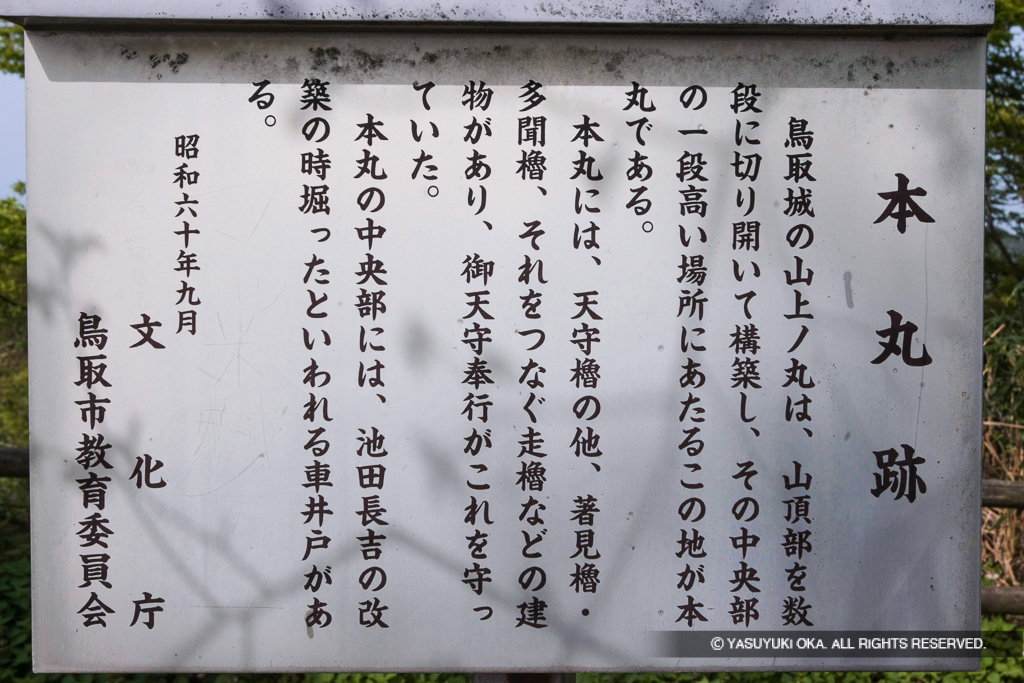 本丸跡
鳥取城の山上ノ丸は、山頂部を数
段に切り開いて構築し、その中央部
の一段高い場所にあたるこの地が本
丸である。
本丸には、天守櫓の他、著見櫓・
多聞櫓、それをつなぐ走櫓などの建
物があり、御天守奉行がこれを守っ
ていた。
本丸の中央部には、池田長吉の改
築の時堀ったといわれる車井戸があ
る。
昭和六十年九月
文化庁
鳥取市教育委員会
© YASUYUKI OKA. ALL RIGHTS RESERVED.